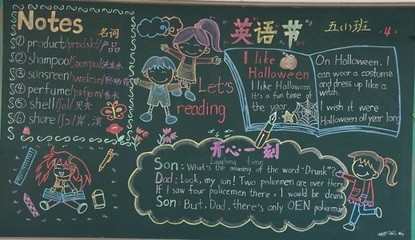 Notes 名词
① product/产品
② shampoo/洗发水
③ sunsreen/防晒霜
④ perfume/香水
⑤ shell/贝壳
⑥ shore/岸,滨
Let's
reading
英语节
五(1)班
4
I like
Halloween
I like Halloween
It's a fun time of
the year.
On Halloween. I
can wear a costume
and dress up like a
witch.
I wish it were
Halloween all year long
开心一刻
Laughing time
Son: What's the meaning of the word "Drunk"?
Dad: Look, my son! Two policemen are over there
If I saw four policemen there, I would be drunk
Son: But, Dad, there's only OEN policeman